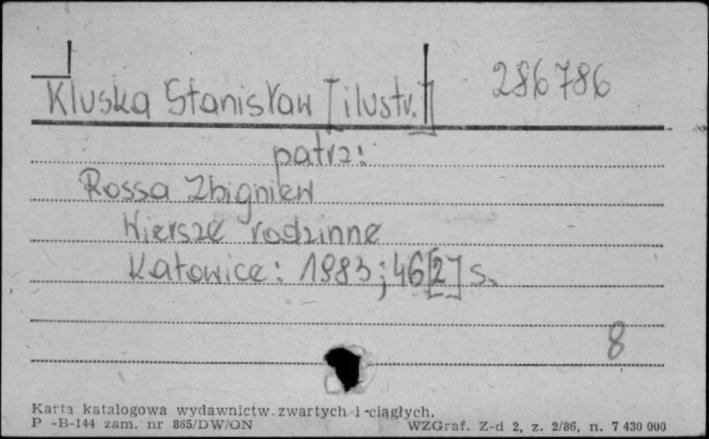 Kluska Stanisław [ilustr.] 286786
patrz:
Rossa Zbigniew
Wiersze rodzinne
Katowice: 1983; 46[2] s.
8
Karta katalogowa wydawnictw zwartych i ciągłych.
P-B-144 zam. nr 865/DW/ON WZGraf. Z-d 2, z. 2/86, n. 7 430 000